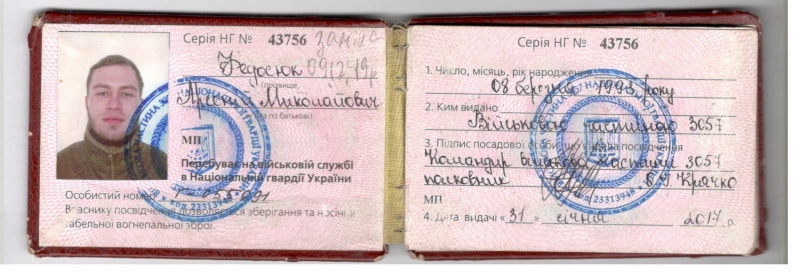 Серія НГ № 43756 заміна
Федосюк
(прізвище,
Арсеній Миколайович
МП
Перебуває на військовій службі
в Національній гвардії України
Особистий номер
Власнику посвідчення дозволяється зберігання та носіння
табельної вогнепальної зброї.
Серія НГ № 43756
1. Число, місяць, рік народження
08 березня року
2. Ким видано
Військовою частиною 3057
3. Підпис посадової особи, що видала посвідчення
Командир військової частини 3057
полковник Крячко
МП
4. Дата видачі « 31 » січня 2017 р.